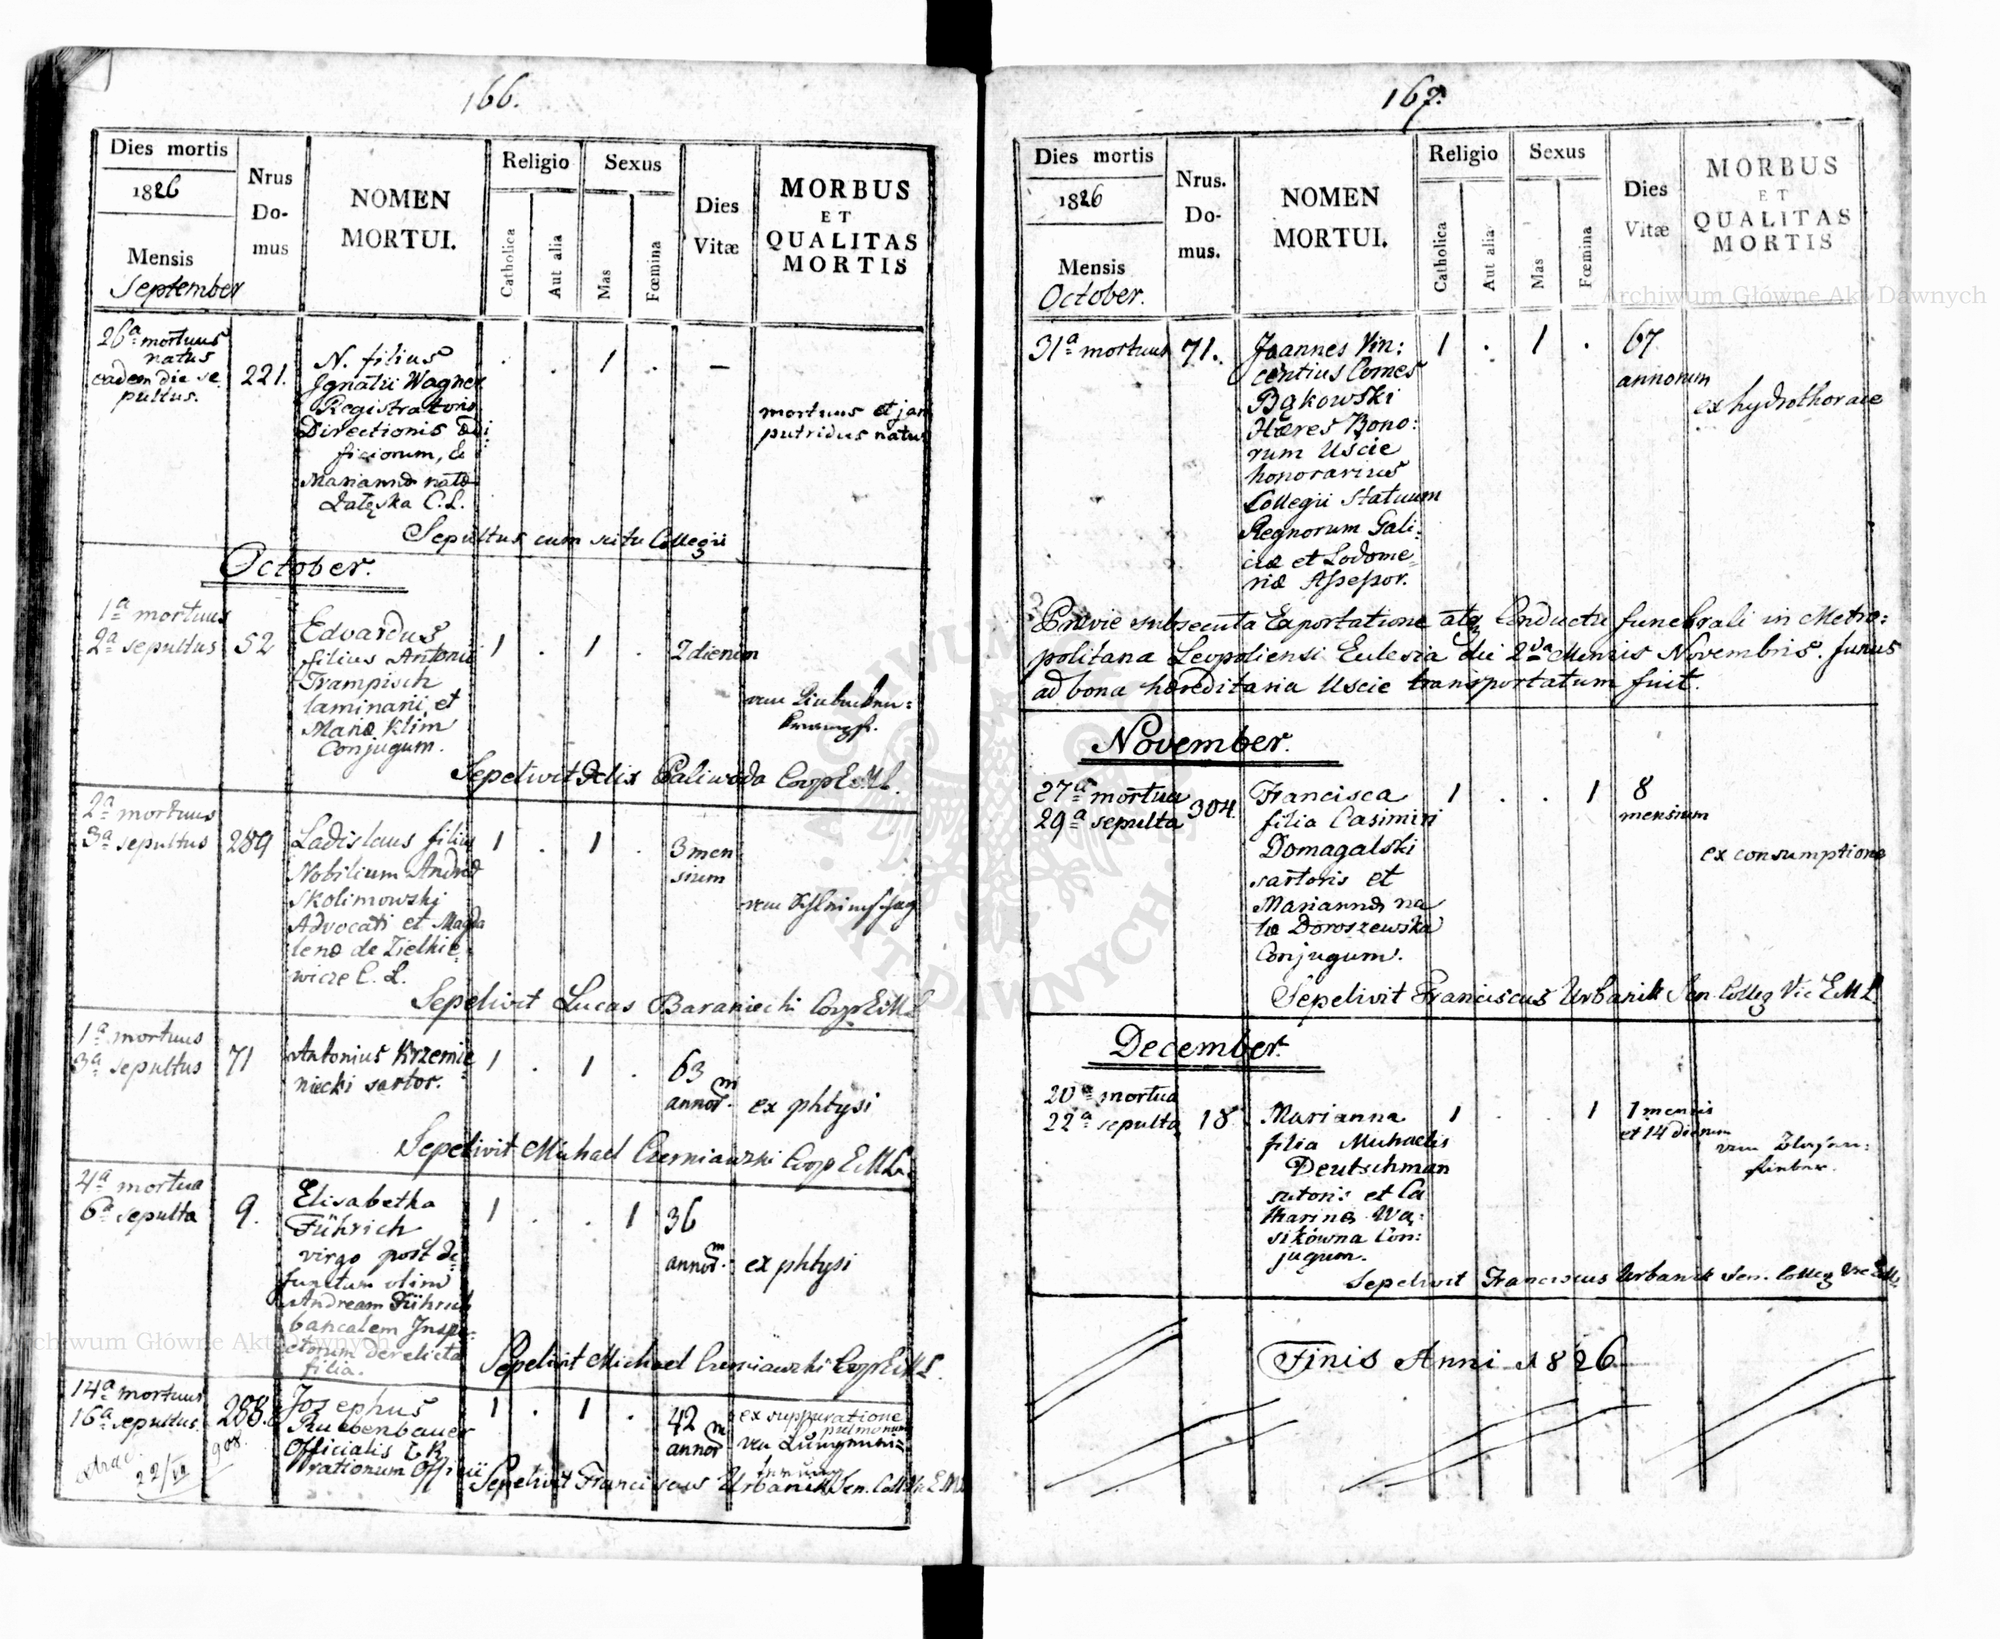 166.
Dies mortis
1826
Mensis
September
Nrus
Do-
mus
NOMEN
MORTUI.
Religio
Catholica
Aut alia
Sexus
Mas
Fœmina
Dies
Vitæ
MORBUS
ET
QUALITAS
MORTIS
26a mortuus
natus
eadem die se
pultus.
221.
N. filius
Ignatii Wagner
Registratoris
Directionis
ficiorum, &
Mariannæ natæ
Łatęska C. L.
. . 1 . –
mortuus et jam
putridus natus
Sepultus cum scitu Collegii
October.
1a mortuus
2a sepultus
52
Edvardus
filius Antonii
Trampisch
laminarii, et
Mariæ Klim
Conjugum.
1 . 1 .
2 dierum
Sepelivit Felix Paliwoda Coop E.M.L.
2a mortuus
3a sepultus
289
Ladislaus filius
Nobilium Andreæ
Skolimowski
Advocati et Magda
lenæ de Zielkie
wicze C. L.
1 . 1 .
3 men
sium
Sepelivit Lucas Baraniecki Coop E.M.L
1a mortuus
3a sepultus
71
Antonius Krzemie
niecki sartor.
1 . 1 .
63
annorm.
ex phtysi
Sepelivit Michael Czerniawski Coop E.M.L.
4a mortua
6a sepulta
9.
Elisabetha
Führich
virgo post de
functum olim
Andream Führich
bancalem Inspe-
ctorum derelicta
filia.
1 . . 1
36
annorm.
ex phtysi
Sepelivit Michael Czerniawski Coop E.M.L.
14a mortuus
16a sepultus.
288.
Josephus
Rubbenbauer
Officialis C. R.
rationum Officii
1 . 1 .
42
annorm
ex suppuratione
pulmonum
Sepelivit Franciscus Urbanik Sen. Coll Vic E.M.L
22/
908.
167.
Dies mortis
1826
Mensis
October.
Nrus.
Do-
mus.
NOMEN
MORTUI.
Religio
Catholica
Aut alia
Sexus
Mas
Fœmina
Dies
Vitæ
MORBUS
ET
QUALITAS
MORTIS
Archiwum Główne Akt Dawnych
31a mortuus
71.
Joannes Vin:
centius Comes
Bąkowski
Hæres Bono:
rum Uście
honorarius
Collegii Statuum
Regnorum Gali:
ciæ et Lodome-
riæ Assessor.
1 . 1 .
67
annorum
ex hydrothorace
Prævie subsecuta Exportatione atq Conductu funebrali in Metro:
politana Leopoliensi Eclesia die 2da Mensis Novembris. funus
ad bona hæreditaria Uscie transportatum fuit.
November.
27a mortua
29a sepulta
304.
Francisca
filia Casimiri
Domagalski
sartoris et
Mariannæ na
tæ Doroszewska
Conjugum.
1 . . 1
8
mensium
ex consumptione
Sepelivit Franciscus Urbanik Sen. Colleg Vic E.M.L
December.
20a mortua
22a sepulta
18
Marianna
filia Michaelis
Deutschman
sutoris et Ca
tharinæ Wą:
sikówna Con:
jugum.
1 . . 1
1 mensis
et 14 dierum
Sepelivit Franciscus Urbanik Sen. Colleg Vic E.M.L
Finis Anni 1826
Archiwum Główne Akt Dawnych
ARCHIWUM
AKT DAWNYCH